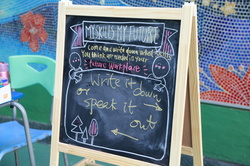 MY SKILLS MY FUTURE
Come and write down what
you think is needed in your
Future Workplace
Write it down
or
speak it
out